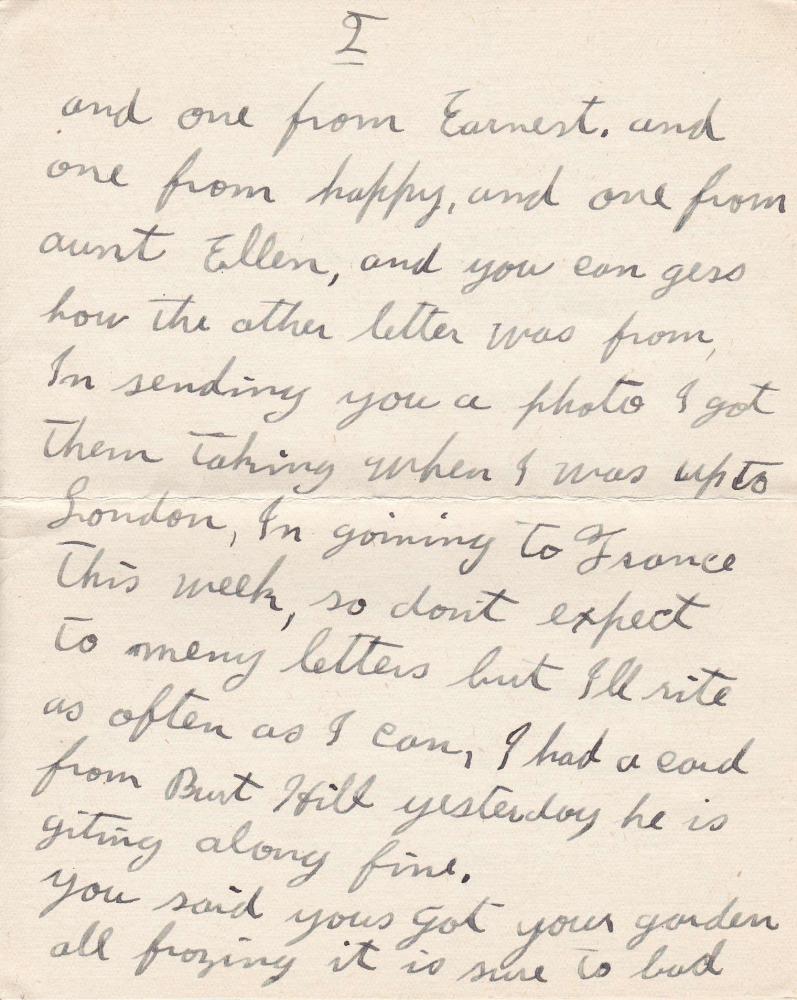 2
and one from Earnest. and
one from happy, and one from
aunt Ellen, and you can gess
how the other letter was from,
In sending you a photo I got
them taking when I was up to
London, In goining to France
this week, so dont expect
to meny letters but I'll rite
as often as I can, I had a card
from Burt Hill yesterday he is
giting along fine.
you said yous got your garden
all frozing it is sure to bad